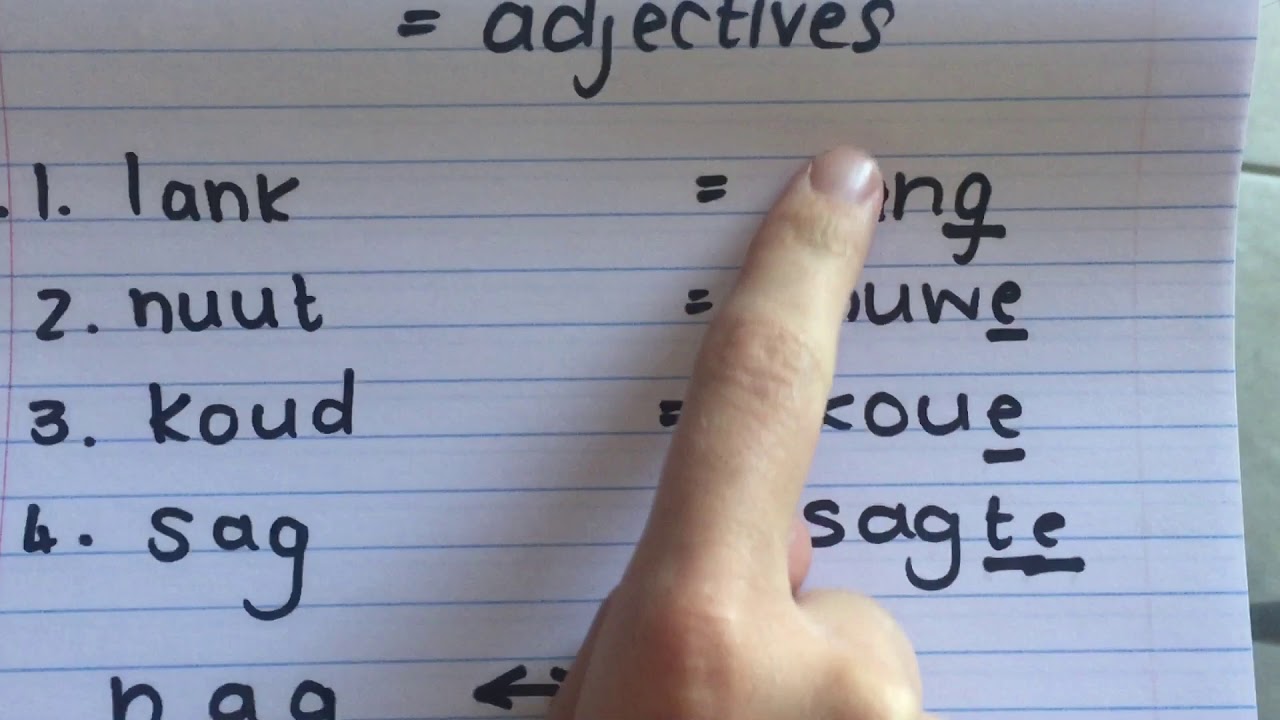 = adjectives
1. lank =
2. nuut =
3. koud = koue
4. sag sagte